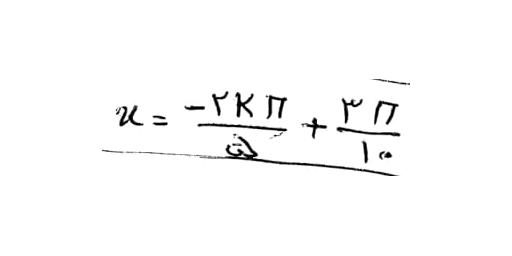 x = -۲kπ/۵ + ۳π/۱۰